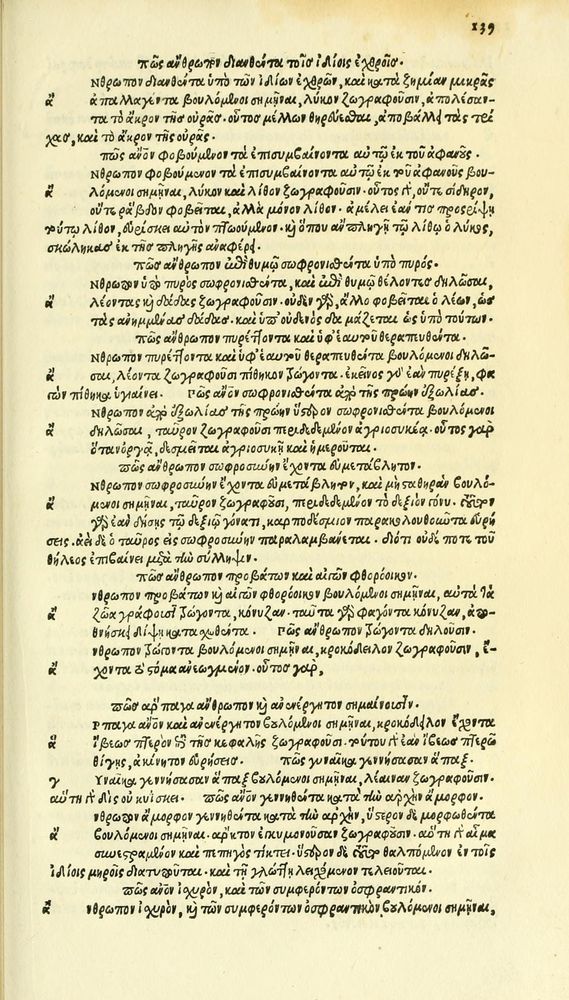 139
πῶς ἄνθρωπον διανθέντα τοῖς ἰδίοις ἐχθροῖς.
Νθρωπον διανθέντα ὑπὸ τῶν ἰδίων ἐχθρῶν, καὶ κατὰ ζημίαν μικρᾶς
ἄ ἀπαλλαγέντα βουλόμενοι σημῆναι, λύκον ζωγραφοῦσιν, ἀπολέσαν-
τα τὸ ἄκρον τῆς οὐρᾶς. οὗτος μέλλων θηρεύεσθαι, ἀποβάλλει τὰς τρί
χας, καὶ τὸ ἄκρον τῆς οὐρᾶς.
πῶς ἄνον φοβούμενον τὰ ἐπισυμβαίνοντα αὐτῷ ἐκ τοῦ ἀφανοῦς.
Νθρωπον φοβούμονον τὰ ἐπισυμβαίνοντα αὐτῷ ἐκ τοῦ ἀφανοῦς βου-
ἄ λόμενοι σημῆναι, λύκον καὶ λίθον ζωγραφοῦσιν. οὗτος γὰρ, οὔτε σίδηρον,
οὔτε ῥάβδον φοβεῖται, ἀλλὰ μόνον λίθον. ἀμέλει ἐάν τις προσρίψῃ
τούτῳ λίθον, εὑρίσκει αὐτὸν πτοούμενον. καὶ ὅπου ἂν πληγῇ τῷ λίθῳ ὁ λύκος,
σκώληκας ἐκ τῆς πληγῆς ἀναφέρει.
πῶς ἄνθρωπον ἐπὶ θυμῷ σωφρονισθέντα ὑπὸ πυρός.
Νθρωπον ὑπὸ πυρὸς σωφρονισθέντα, καὶ ἐπὶ θυμῷ θέλοντες δηλῶσαι,
ἄ λέοντας καὶ δᾷδας ζωγραφοῦσιν. οὐδὲν γὰρ, ἄλλο φοβεῖται ὁ λέων, ὡς
τὰς ἀνημμένας δᾷδας. καὶ ὑπ' οὐδενὸς δαμάζεται ὡς ὑπὸ τούτων.
πῶς ἄνθρωπον πυρέττοντα καὶ ὑφ' ἑαυτοῦ θεραπευθέντα.
Νθρωπον πυρέττοντα καὶ ὑφ' ἑαυτοῦ θεραπευθέντα βουλόμενοι δηλῶ-
ἄ σαι, λέοντα ζωγραφοῦσι πίθηκον τρώγοντα. ἐκεῖνος γὸ ἐὰν πυρέξῃ, φα
γὼν πίθηκα ὑγιαίνει. Πῶς ἄνον σωφρονισθέντα ἀπὸ τῆς πρώην ἐξωλίας.
Νθρωπον ἀπὸ ἐξωλίας τῆς πρώην ὕστερον σωφρονισθέντα βουλόμενοι
ἄ δηλῶσαι, ταῦρον ζωγραφοῦσι περιδεδεμένον ἀγριοσυκέᾳ. οὗτος γὰρ
ὅταν ὀργᾷ, δεσμεῖται ἀγριοσυκῇ καὶ ἡμεροῦται.
πῶς ἄνθρωπον σωφροσύνην ἔχοντα εὐμετάβλητον.
Νθρωπον σωφροσύνην ἔχοντα εὐμετάβλητον, καὶ μὴ σταθηρὰν βουλό-
ἄ μενοι σημῆναι, ταῦρον ζωγραφοῦσι, περιδεδεμένον τὸ δεξιὸν γόνυ. τοῦτον
γὰρ ἐὰν δήσῃς τῷ δεξιῷ γόνατι, καρποδέσμιον παρακολουθοῦντα εὑρή
σεις. ἀεὶ δὲ ὁ ταῦρος εἰς σωφροσύνην παραλαμβάνεται. διότι οὐδέποτε τοῦ
θήλεος ἐπιβαίνει μετὰ τὴν σύλληψιν.
πῶς ἄνθρωπον προβάτων καὶ αἰγῶν φθορόοικον.
νθρωπον προβάτων καὶ αἰγῶν φθορόοικον βουλόμενοι σημῆναι, αὐτὰ τὰ
ἄ ζῶα γράφοισι τρώγοντα, κόνυζαν. ταῦτα γὰρ φαγόντα κόνυζαν, ἀπο-
θνήσκει δίψῃ κατασχεθέντα. Πῶς ἄνθρωπον τρώγοντα δηλοῦσιν.
νθρωπον τρώγοντα βουλόμενοι σημῆναι, κροκόδειλον ζωγραφοῦσιν, ἔ-
ἄ χοντα τὸ στόμα ἀνεωγμένον. οὗτος γὰρ,
πῶς ἅρπαγα ἄνθρωπον καὶ ἀνενέργητον σημαίνουσιν.
Ρπαγα ἄνον καὶ ἀνενέργητον βουλόμενοι σημῆναι, κροκόδειλον ἔχοντα
ἄ ἴβεως πτερὸν ἐπὶ τῆς κεφαλῆς ζωγραφοῦσι. τούτου γὰρ ἐὰν ἴβεως πτερῷ
θίγῃς, ἀκίνητον εὑρήσεις. πῶς γυναῖκα γεννήσασαν ἅπαξ.
γ Υναῖκα γεννήσασαν ἅπαξ βουλόμενοι σημῆναι, λέαιναν ζωγραφοῦσιν.
αὕτη γὰρ δὶς οὐ κυΐσκει. πῶς ἄνον γεννηθέντα κατὰ τὴν ἀρχὴν ἄμορφον.
νθρωπον ἄμορφον γεννηθέντα κατὰ τὴν ἀρχὴν, ὕστερον δὲ μορφωθέντα
ἄ βουλόμενοι σημῆναι. ἄρκτον ἐγκυμονοῦσαν ζωγραφοῦσιν. αὕτη γὰρ αἷμα
συνεστραμμένον καὶ πεπηγὸς τίκτει. ὕστερον δὲ τοῦτο θαλπόμενον ἐν τοῖς
ἰδίοις μηροῖς διατυποῦται. καὶ τῇ γλώττῃ λειχόμενον τελειοῦται.
πῶς ἄνον ἰσχυρὸν, καὶ τῶν συμφερόντων ὀσφραντικόν.
ἄ νθρωπον ἰσχυρὸν, καὶ τῶν συμφερόντων ὀσφραντικὸν βουλόμενοι σημῆναι,